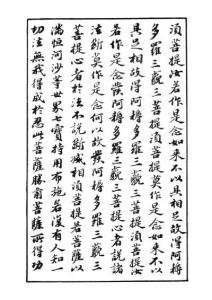 須菩提汝若作是念如來不以具足相故得阿耨
多羅三藐三菩提須菩提莫作是念如來不以
具足相故得阿耨多羅三藐三菩提須菩提汝
若作是念發阿耨多羅三藐三菩提心者說諸
法斷莫作是念何以故發阿耨多羅三藐三
菩提心者於法不說斷滅相須菩提若菩薩以
滿恒河沙等世界七寶持用布施若復有人知一
切法無我得成於忍此菩薩勝前菩薩所得功